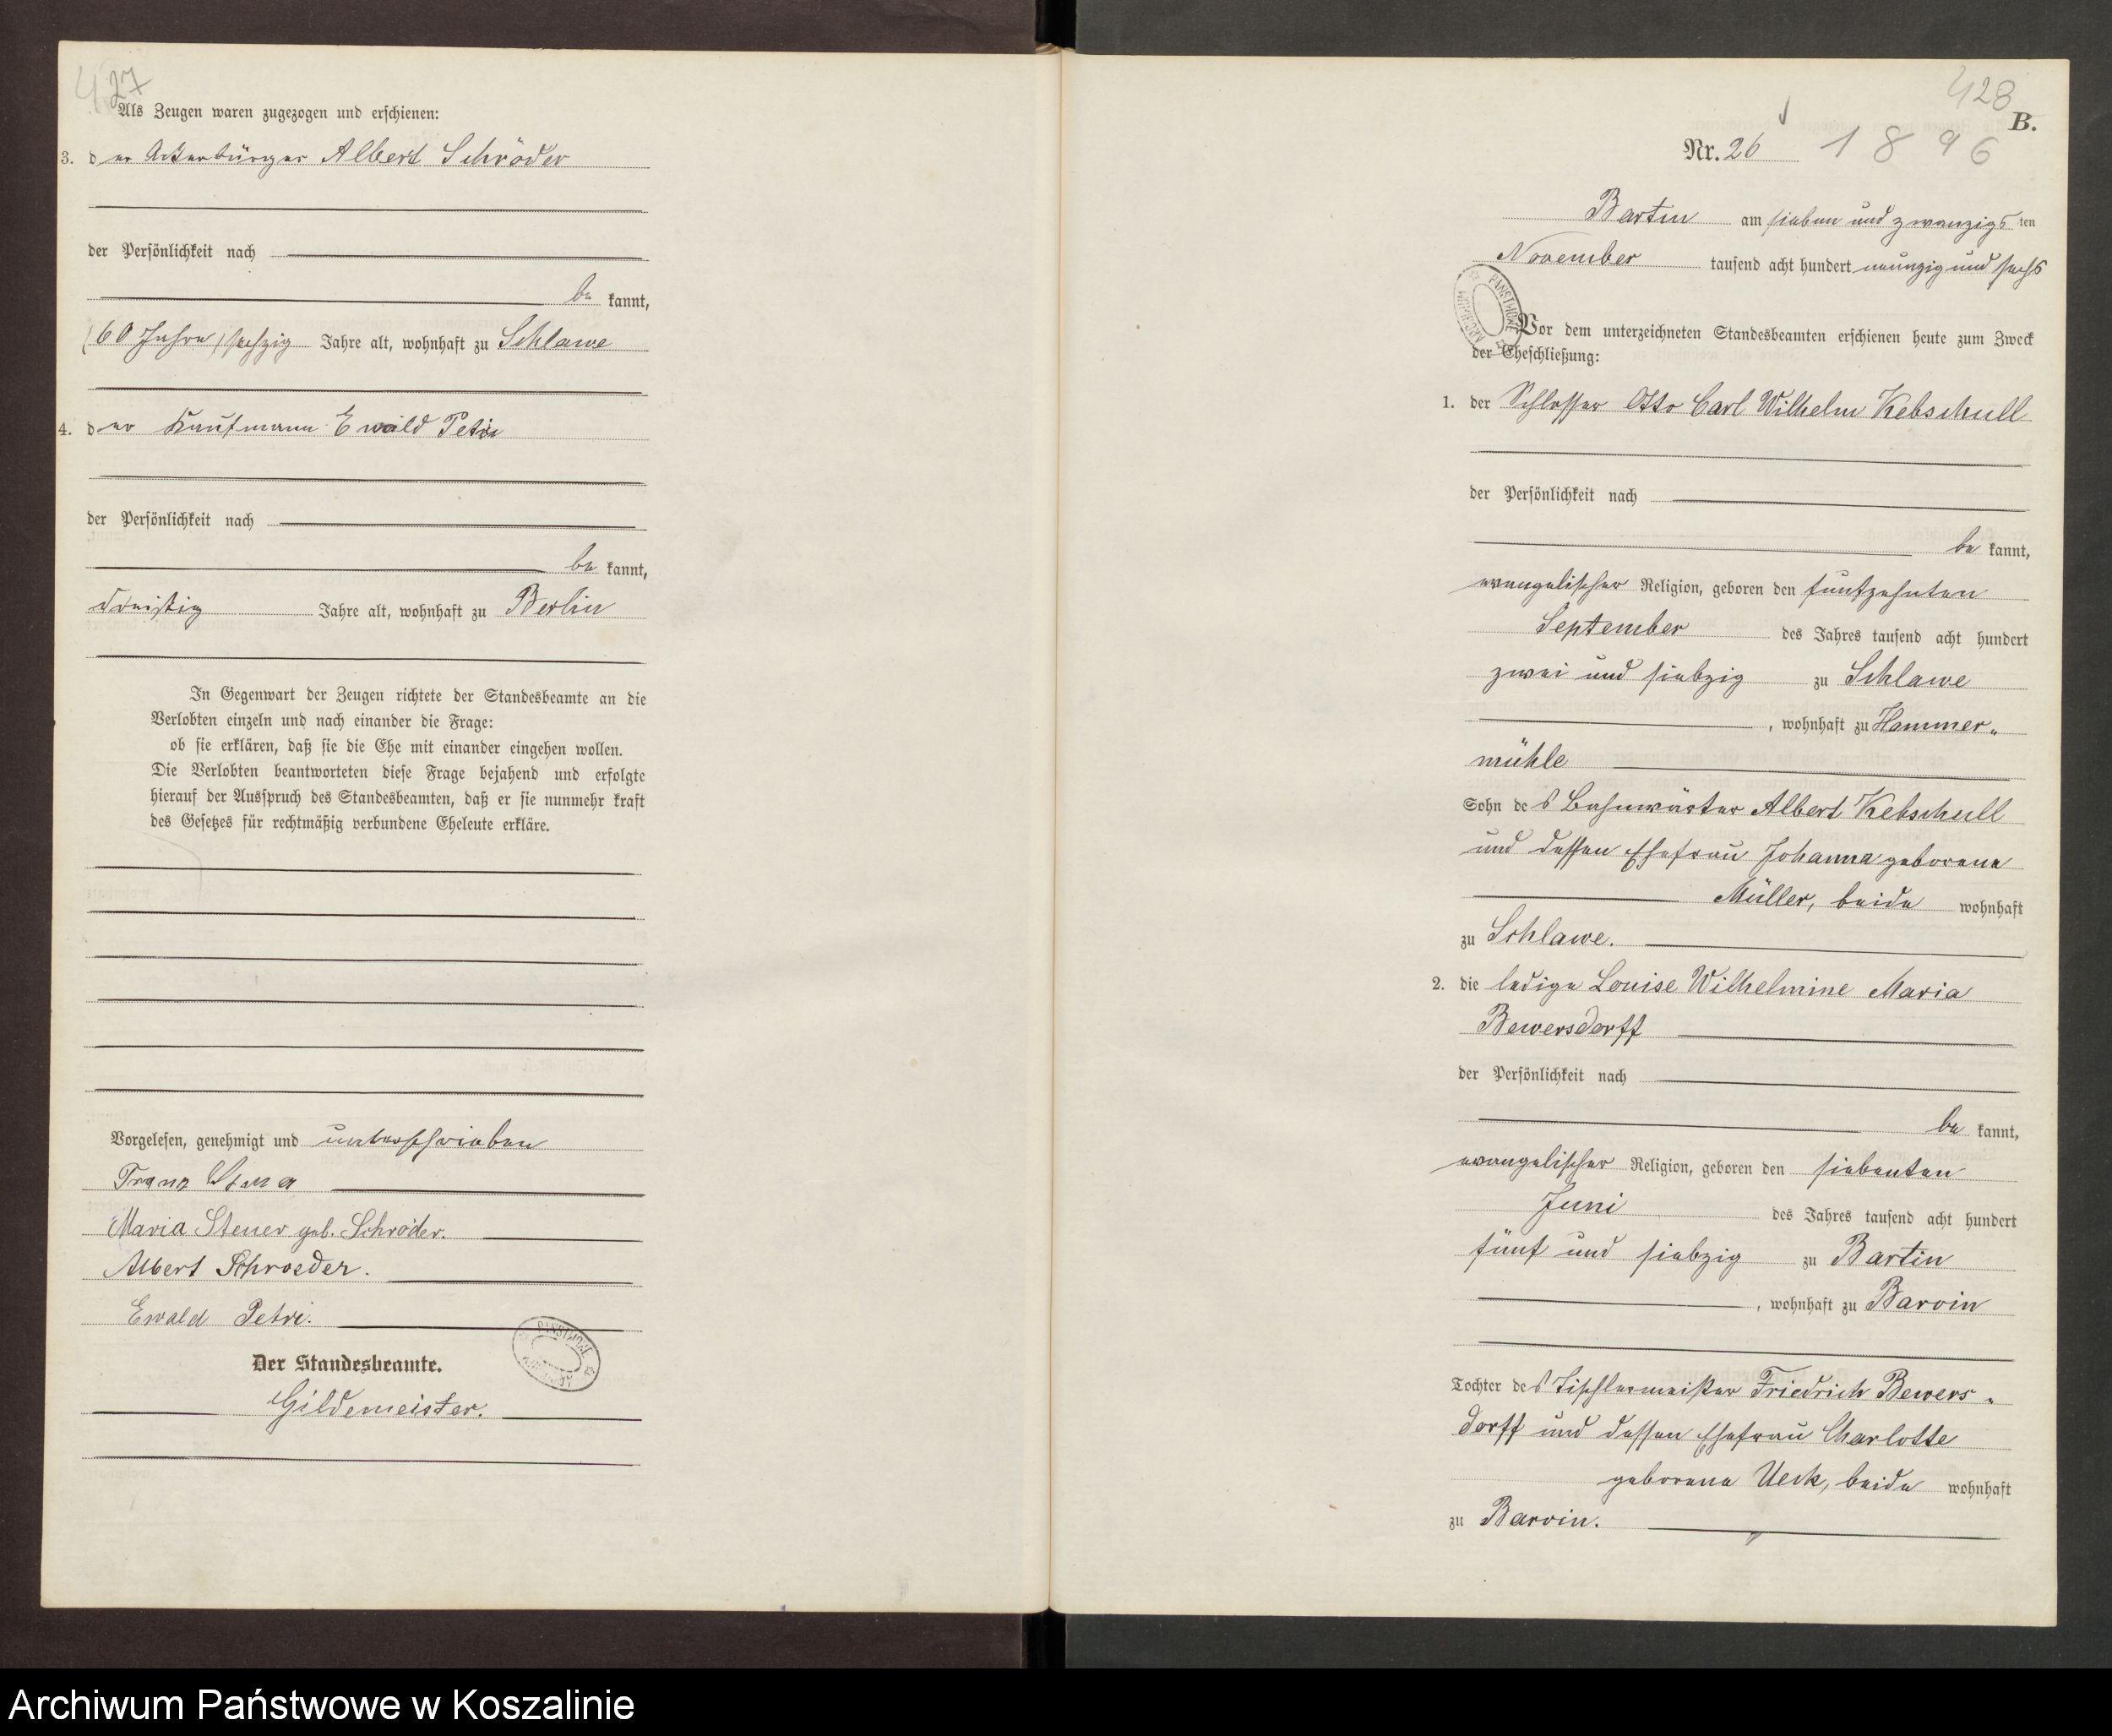 427
Als Zeugen waren zugezogen und erschienen:
3. der Ackerbürger Albert Schröder
der Persönlichkeit nach
be kannt,
(60 Jahre) sechzig Jahre alt, wohnhaft zu Schlawe
4. der Kaufmann Ewald Petri
der Persönlichkeit nach
be kannt,
dreißig Jahre alt, wohnhaft zu Berlin
In Gegenwart der Zeugen richtete der Standesbeamte an die
Verlobten einzeln und nach einander die Frage:
ob sie erklären, daß sie die Ehe mit einander eingehen wollen.
Die Verlobten beantworteten diese Frage bejahend und erfolgte
hierauf der Ausspruch des Standesbeamten, daß er sie nunmehr kraft
des Gesetzes für rechtmäßig verbundene Eheleute erkläre.
Vorgelesen, genehmigt und unterschrieben
Franz
Maria Stener geb. Schröder.
Albert Schroeder.
Ewald Petri.
Der Standesbeamte.
Gildemeister.
428
B.
Nr. 26 1896
Bartin am sieben und zwanzigs ten
November tausend acht hundert neunzig und sechs
ARCHIWUM PAŃSTWOWE
Vor dem unterzeichneten Standesbeamten erschienen heute zum Zweck
der Eheschließung:
1. der Schlosser Otto Carl Wilhelm Kebschull
der Persönlichkeit nach
be kannt,
evangelischer Religion, geboren den fünfzehnten
September des Jahres tausend acht hundert
zwei und siebzig zu Schlawe
, wohnhaft zu Hammer-
mühle
Sohn des Bahnwärter Albert Kebschull
und dessen Ehefrau Johanna geborene
Müller, beide wohnhaft
zu Schlawe.
2. die ledige Louise Wilhelmine Maria
Bewersdorff
der Persönlichkeit nach
be kannt,
evangelischer Religion, geboren den siebenten
Juni des Jahres tausend acht hundert
fünf und siebzig zu Bartin
, wohnhaft zu Barvin
Tochter des Tischlermeister Friedrich Bewers-
dorff und dessen Ehefrau Charlotte
geborene Ueck, beide wohnhaft
zu Barvin.
Archiwum Państwowe w Koszalinie